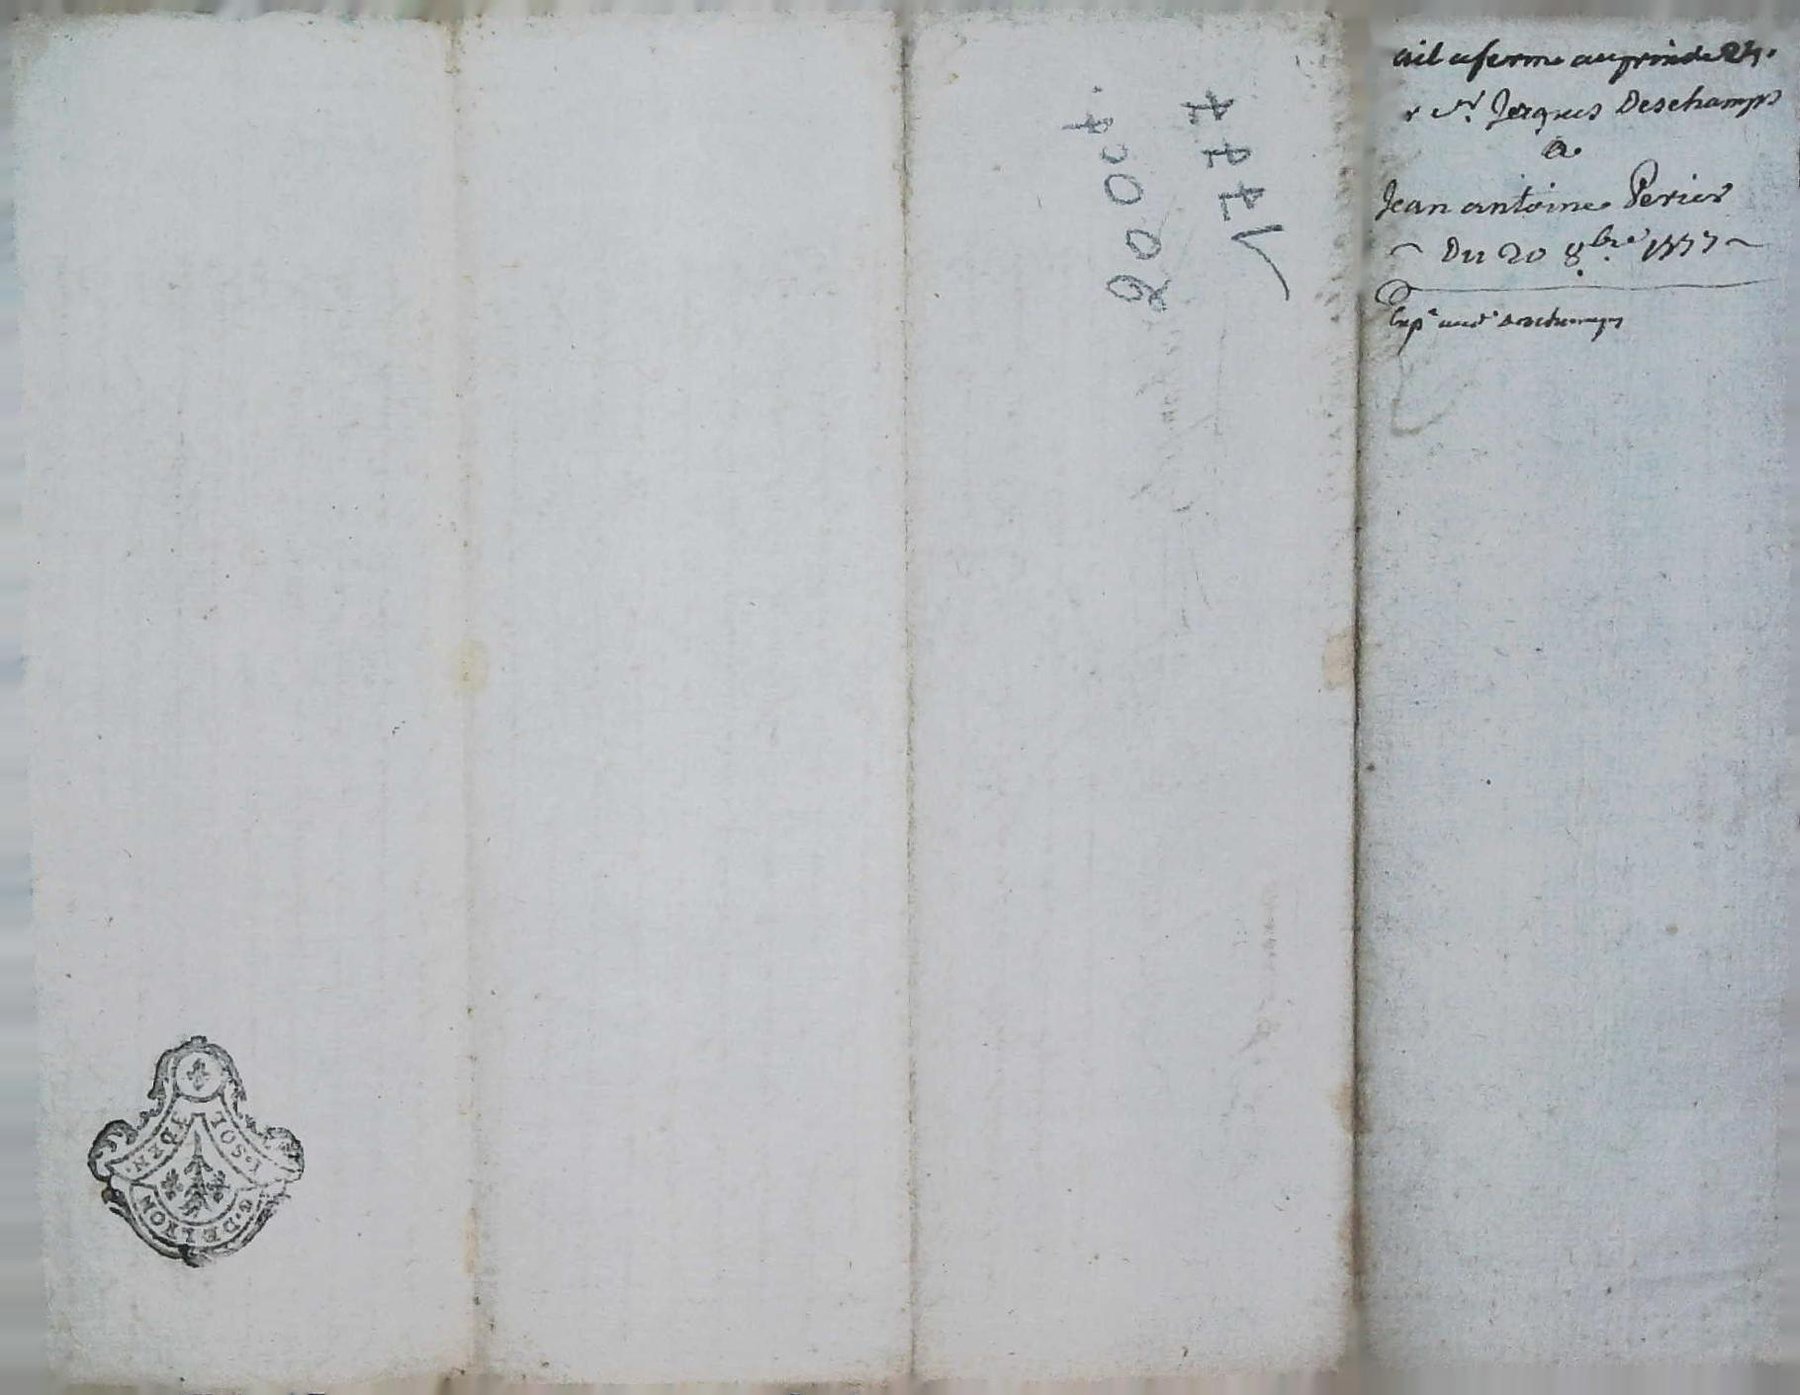 ail a ferme au prix de 24.
r Sr. Jacques Deschamps
a
Jean antoine Perier
~ Du 20 8bre 1777 ~
Expé audt Deschamps
1777
200ct.
I·SOL
IDEN·
G·DELION